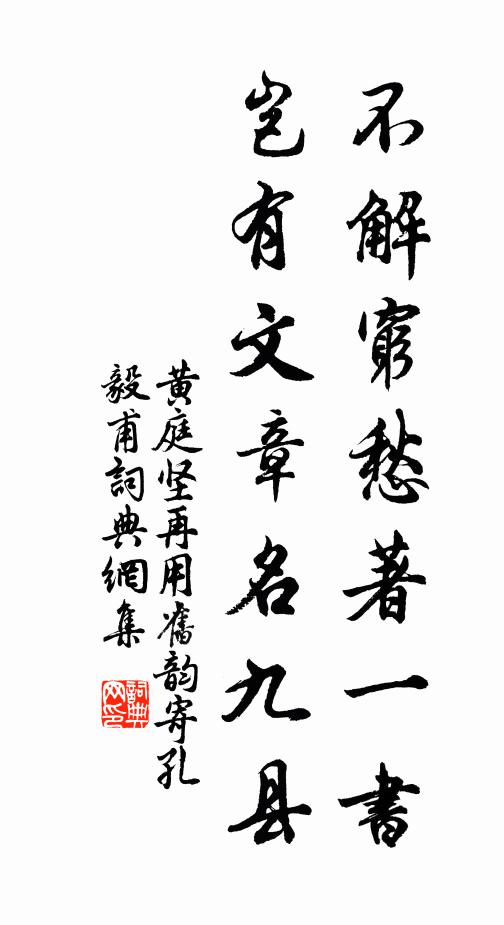 不解窮愁著一書
豈有文章名九县
黄庭坚再用舊韵寄孔
毅甫詞典網集
詞典
网印